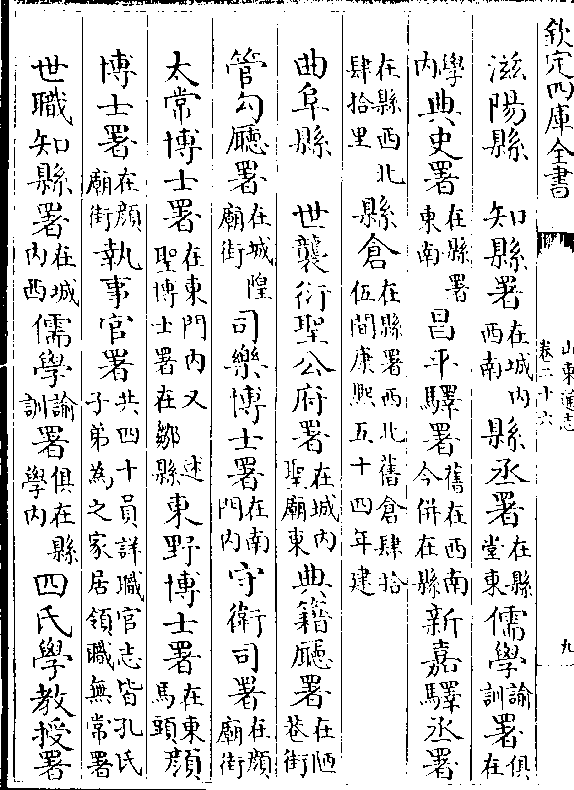 欽定四庫全書 山東通志卷二十六 九
滋陽縣 知縣署在城内西南縣丞署在縣堂東儒學諭訓署俱在
學内典史署在縣署東南昌平驛署舊在西南今併在縣新嘉驛丞署
在縣西北肆拾里縣倉在縣署西北舊倉肆拾伍間康熙五十四年建
曲阜縣 世襲衍聖公府署在城内聖廟東典籍廳署在陋巷街
管勾廳署在城隍廟街司樂博士署在南門内守衛司署在顔廟街
太常博士署在東門内又述聖博士署在鄒縣東野博士署在東馬頭顔
博士署在顔廟街執事官署共四十員詳職官志皆孔氏子弟為之家居領職無常署
世職知縣署在城内西儒學諭訓署俱在縣學内四氏學教授署